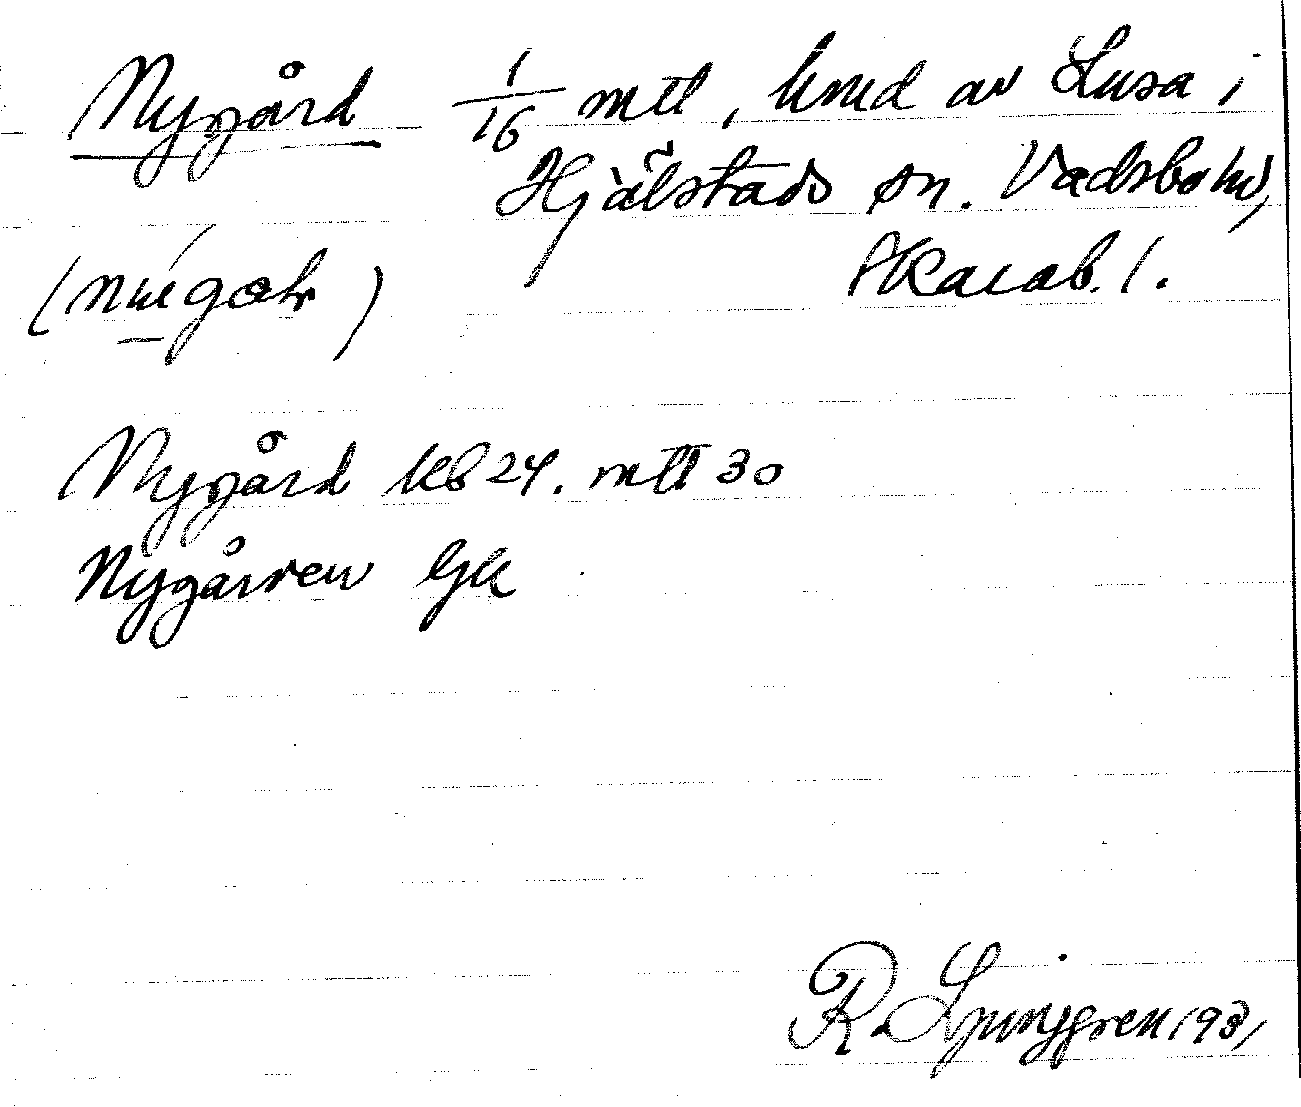 Nygård 1/16 mtl, kmd av Lusa i
Hjälstads sn. Vadsbo hd,
Skarab. l.
Nygård kb 24. mtl 30
Nygården Gk
R. Ljunggren 1931